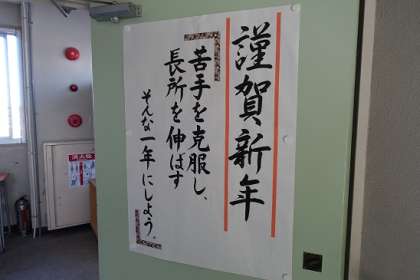 謹賀新年
苦手を克服し、
長所を伸ばす
そんな一年にしよう。
消火栓